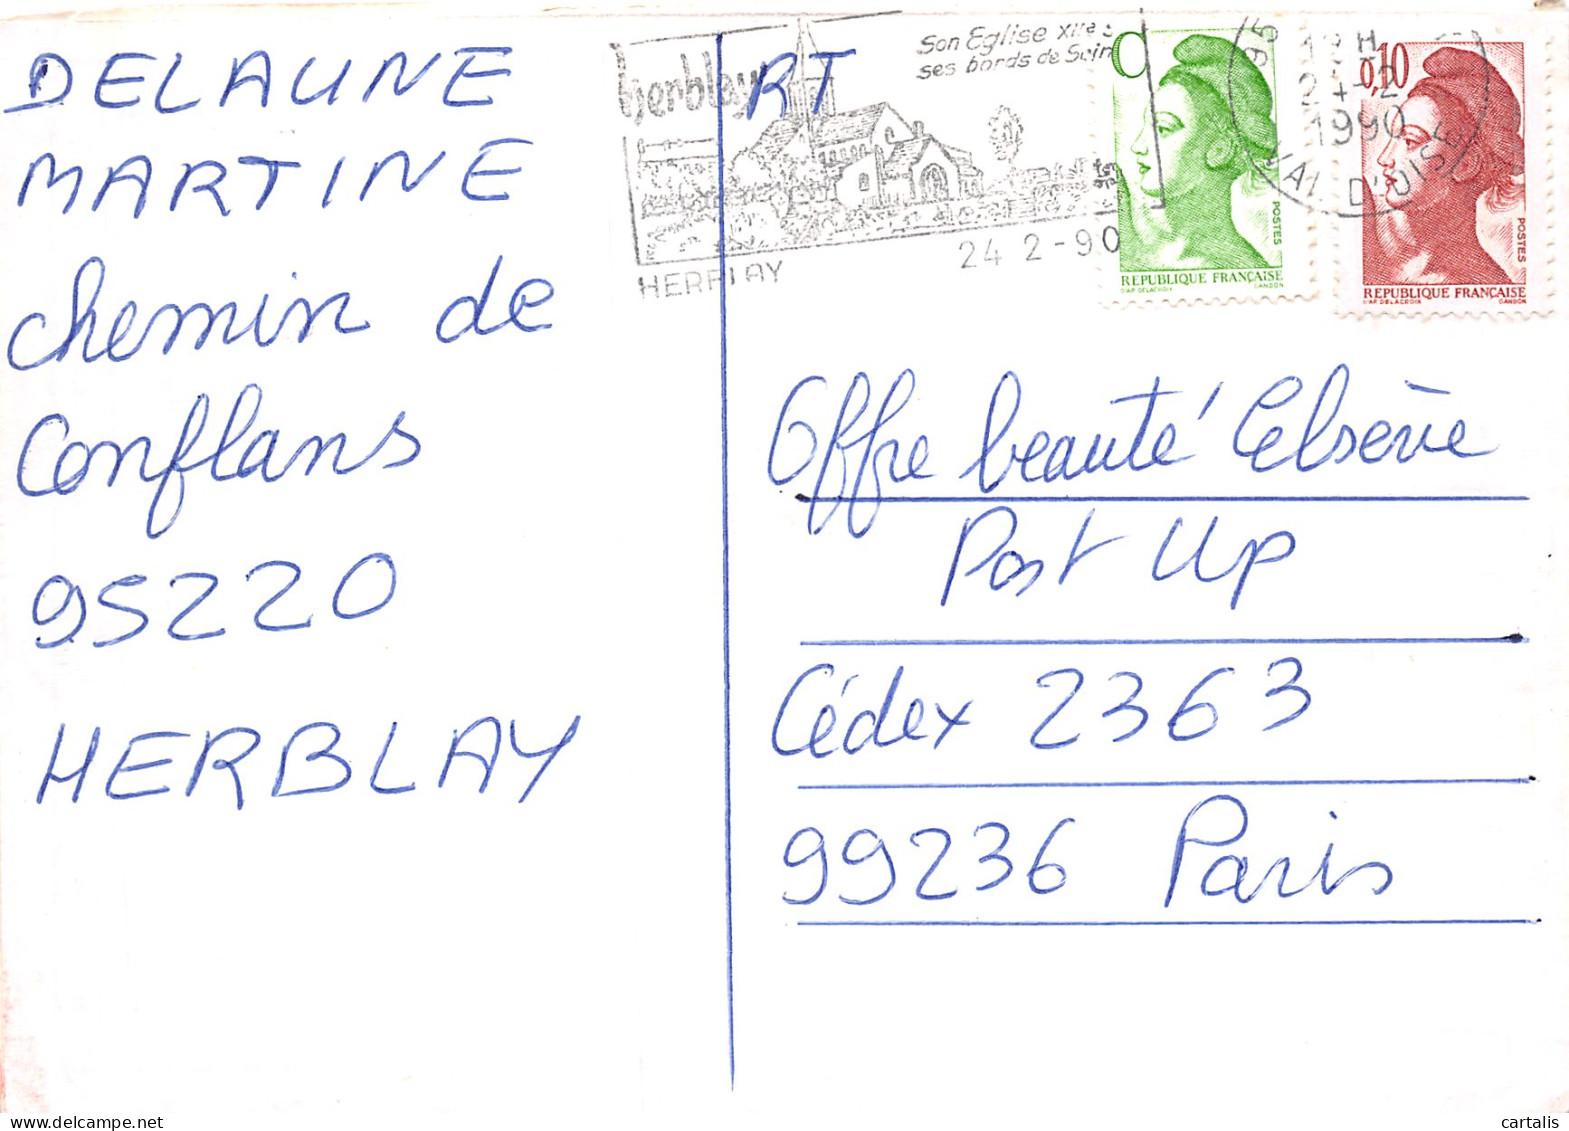 DELAUNE
MARTINE
chemin de
Conflans
95220
HERBLAY
RT
herblay
Son Eglise XIIe s
ses bords de Sein
HERBLAY
24 2-90
REPUBLIQUE FRANÇAISE
POSTES
D'AP DELACROIX
GANDON
95
18H
24-2
1990
VAL D'OISE
0,10
REPUBLIQUE FRANÇAISE
POSTES
D'AP DELACROIX
GANDON
Offre beauté Elsève
Post Up
Cédex 2363
99236 Paris
cartalis